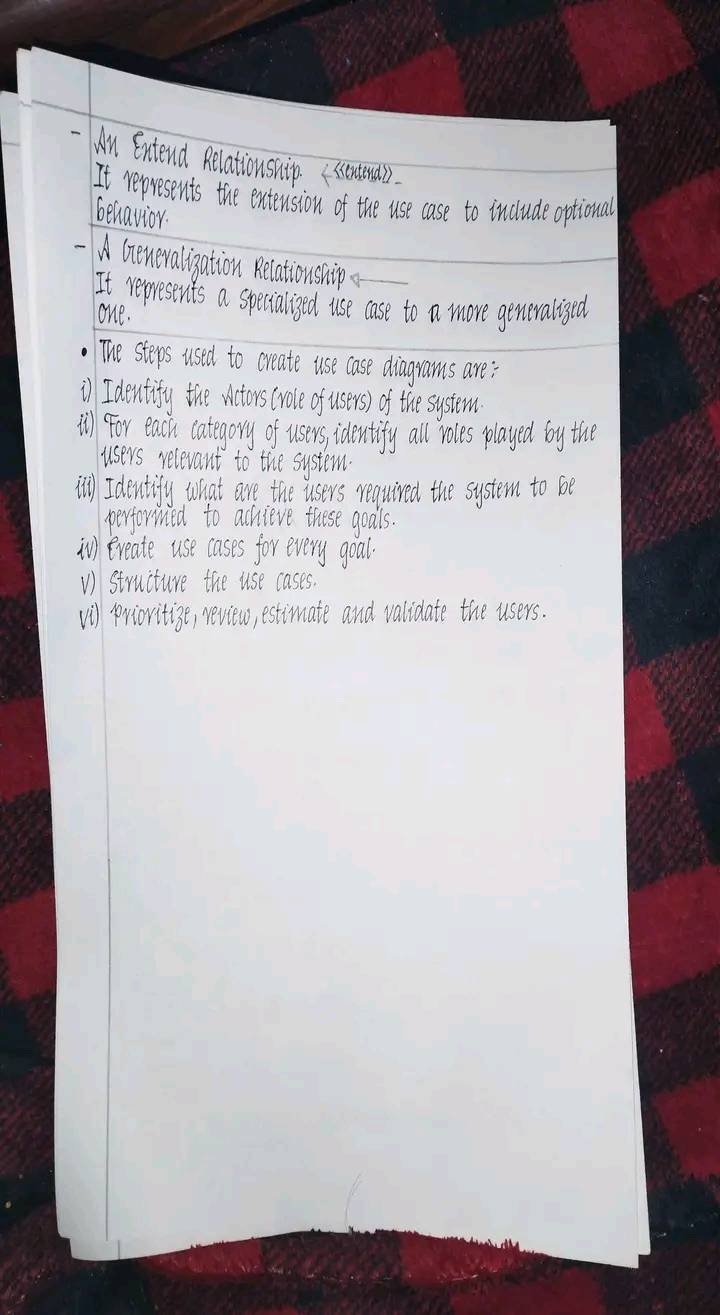 - An Extend Relationship. <<extend>>
It represents the extension of the use case to include optional
behavior.
- A Generalization Relationship
It represents a specialized use case to a more generalized
one.
• The steps used to create use case diagrams are:-
i) Identify the Actors (role of users) of the system.
ii) For each category of users, identify all roles played by the
users relevant to the system.
iii) Identify what are the users required the system to be
performed to achieve these goals.
iv) Create use cases for every goal.
v) Structure the use cases.
vi) Prioritize, review, estimate and validate the users.